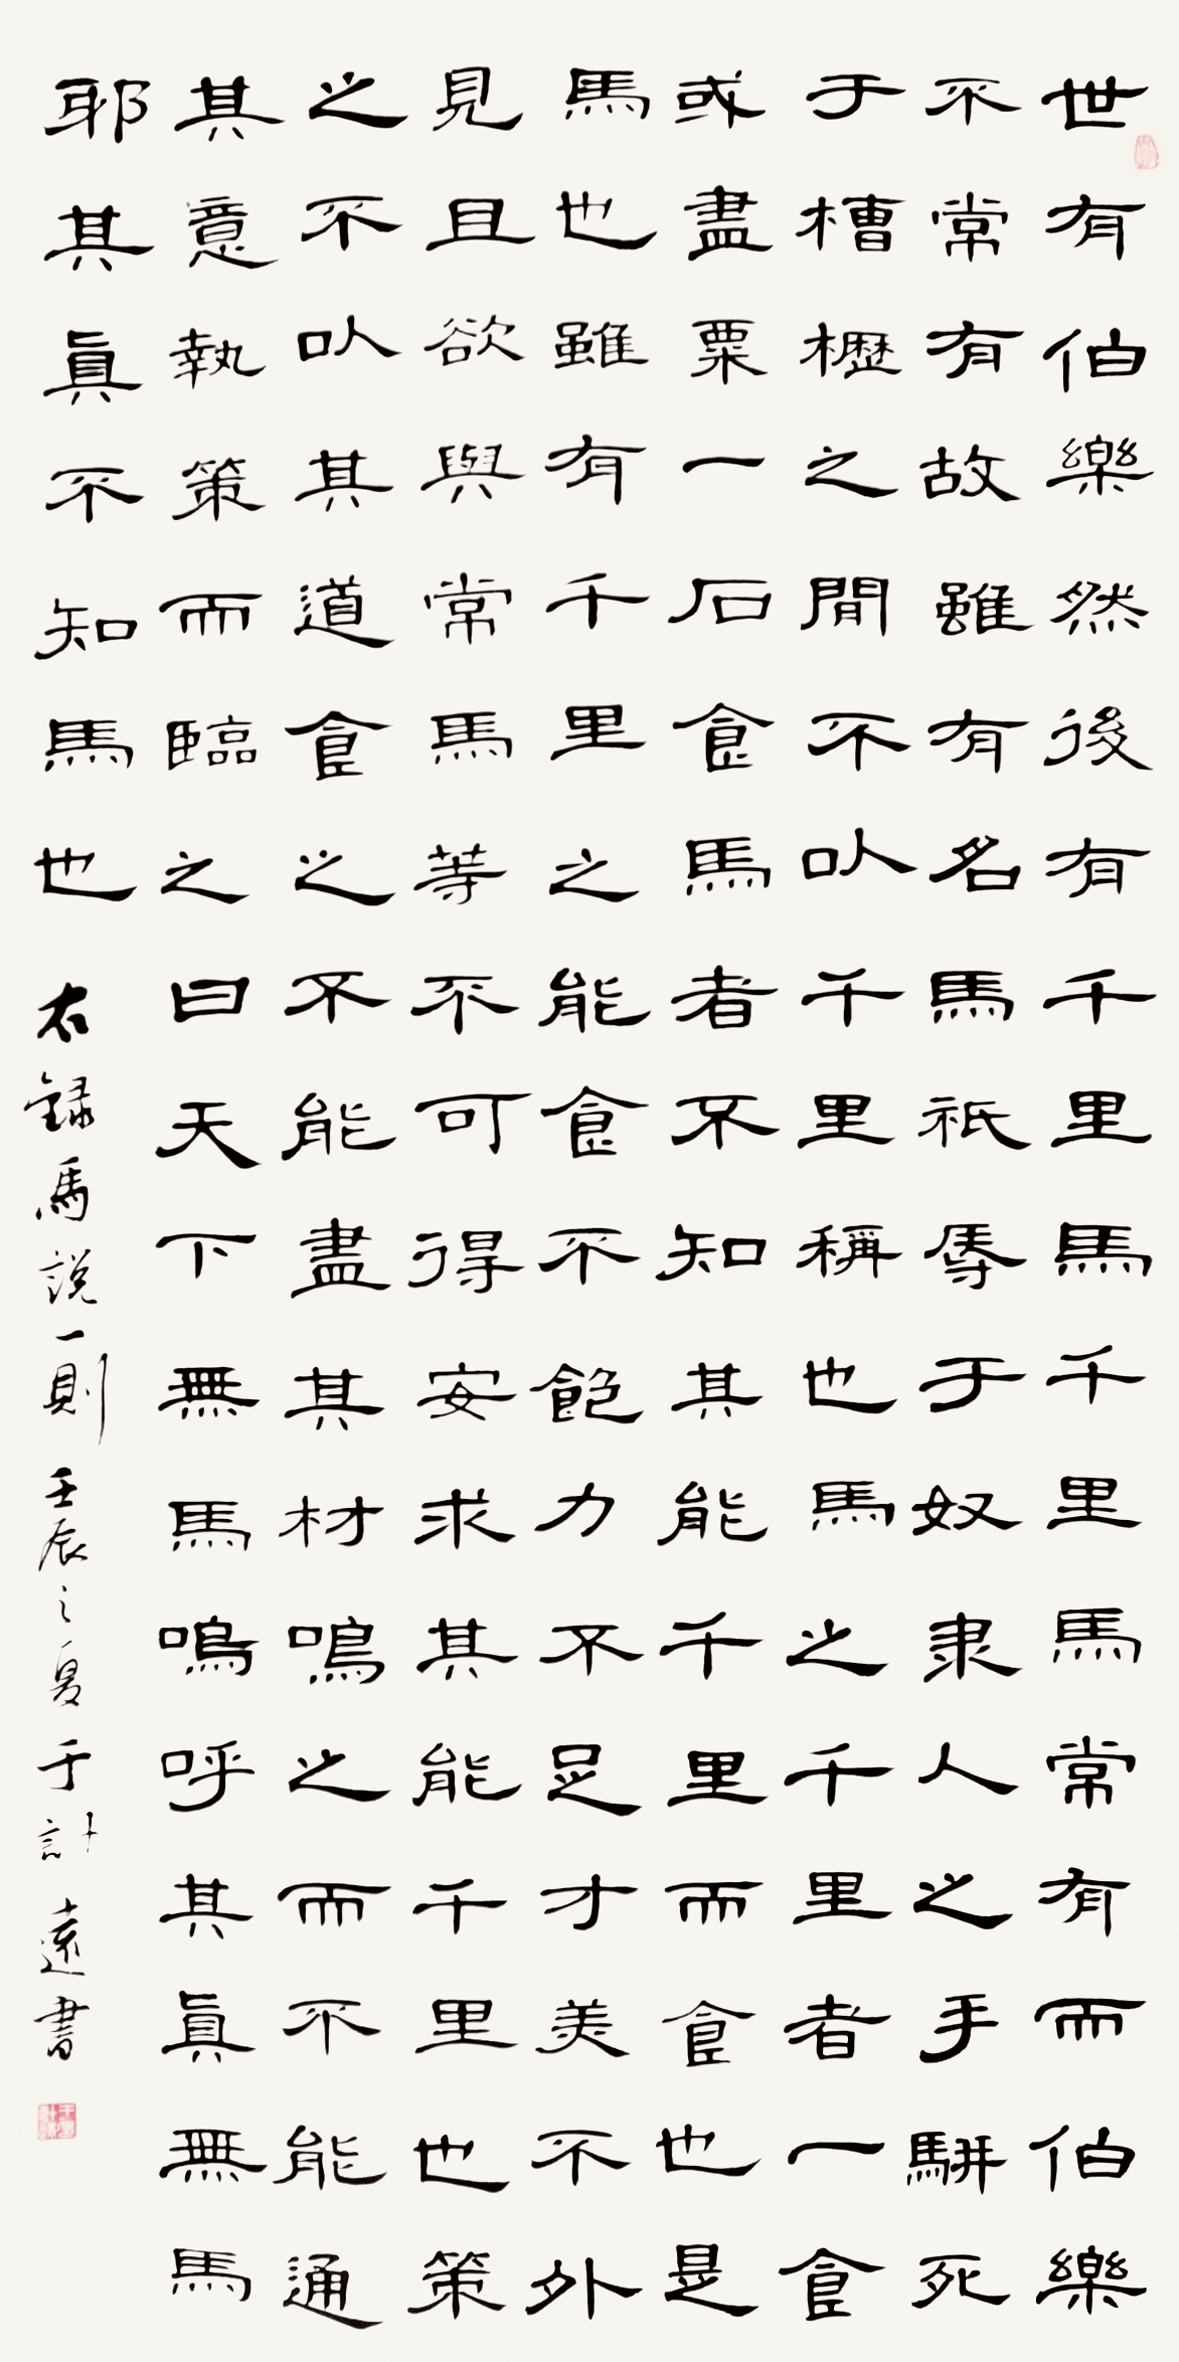 世有伯樂然後有千里馬千里馬常有而伯樂
不常有故雖有名馬祇辱于奴隶人之手駢死
于槽櫪之閒不以千里稱也馬之千里者一食
或盡粟一石食馬者不知其能千里而食也是
馬也雖有千里之能食不飽力不足才美不外
見且欲與常馬等不可得安求其能千里也策
之不以其道食之不能盡其材鳴之而不能通
其意執策而臨之曰天下無馬嗚呼其眞無馬
耶其眞不知馬也
右録馬説一則壬辰之夏于計遠書